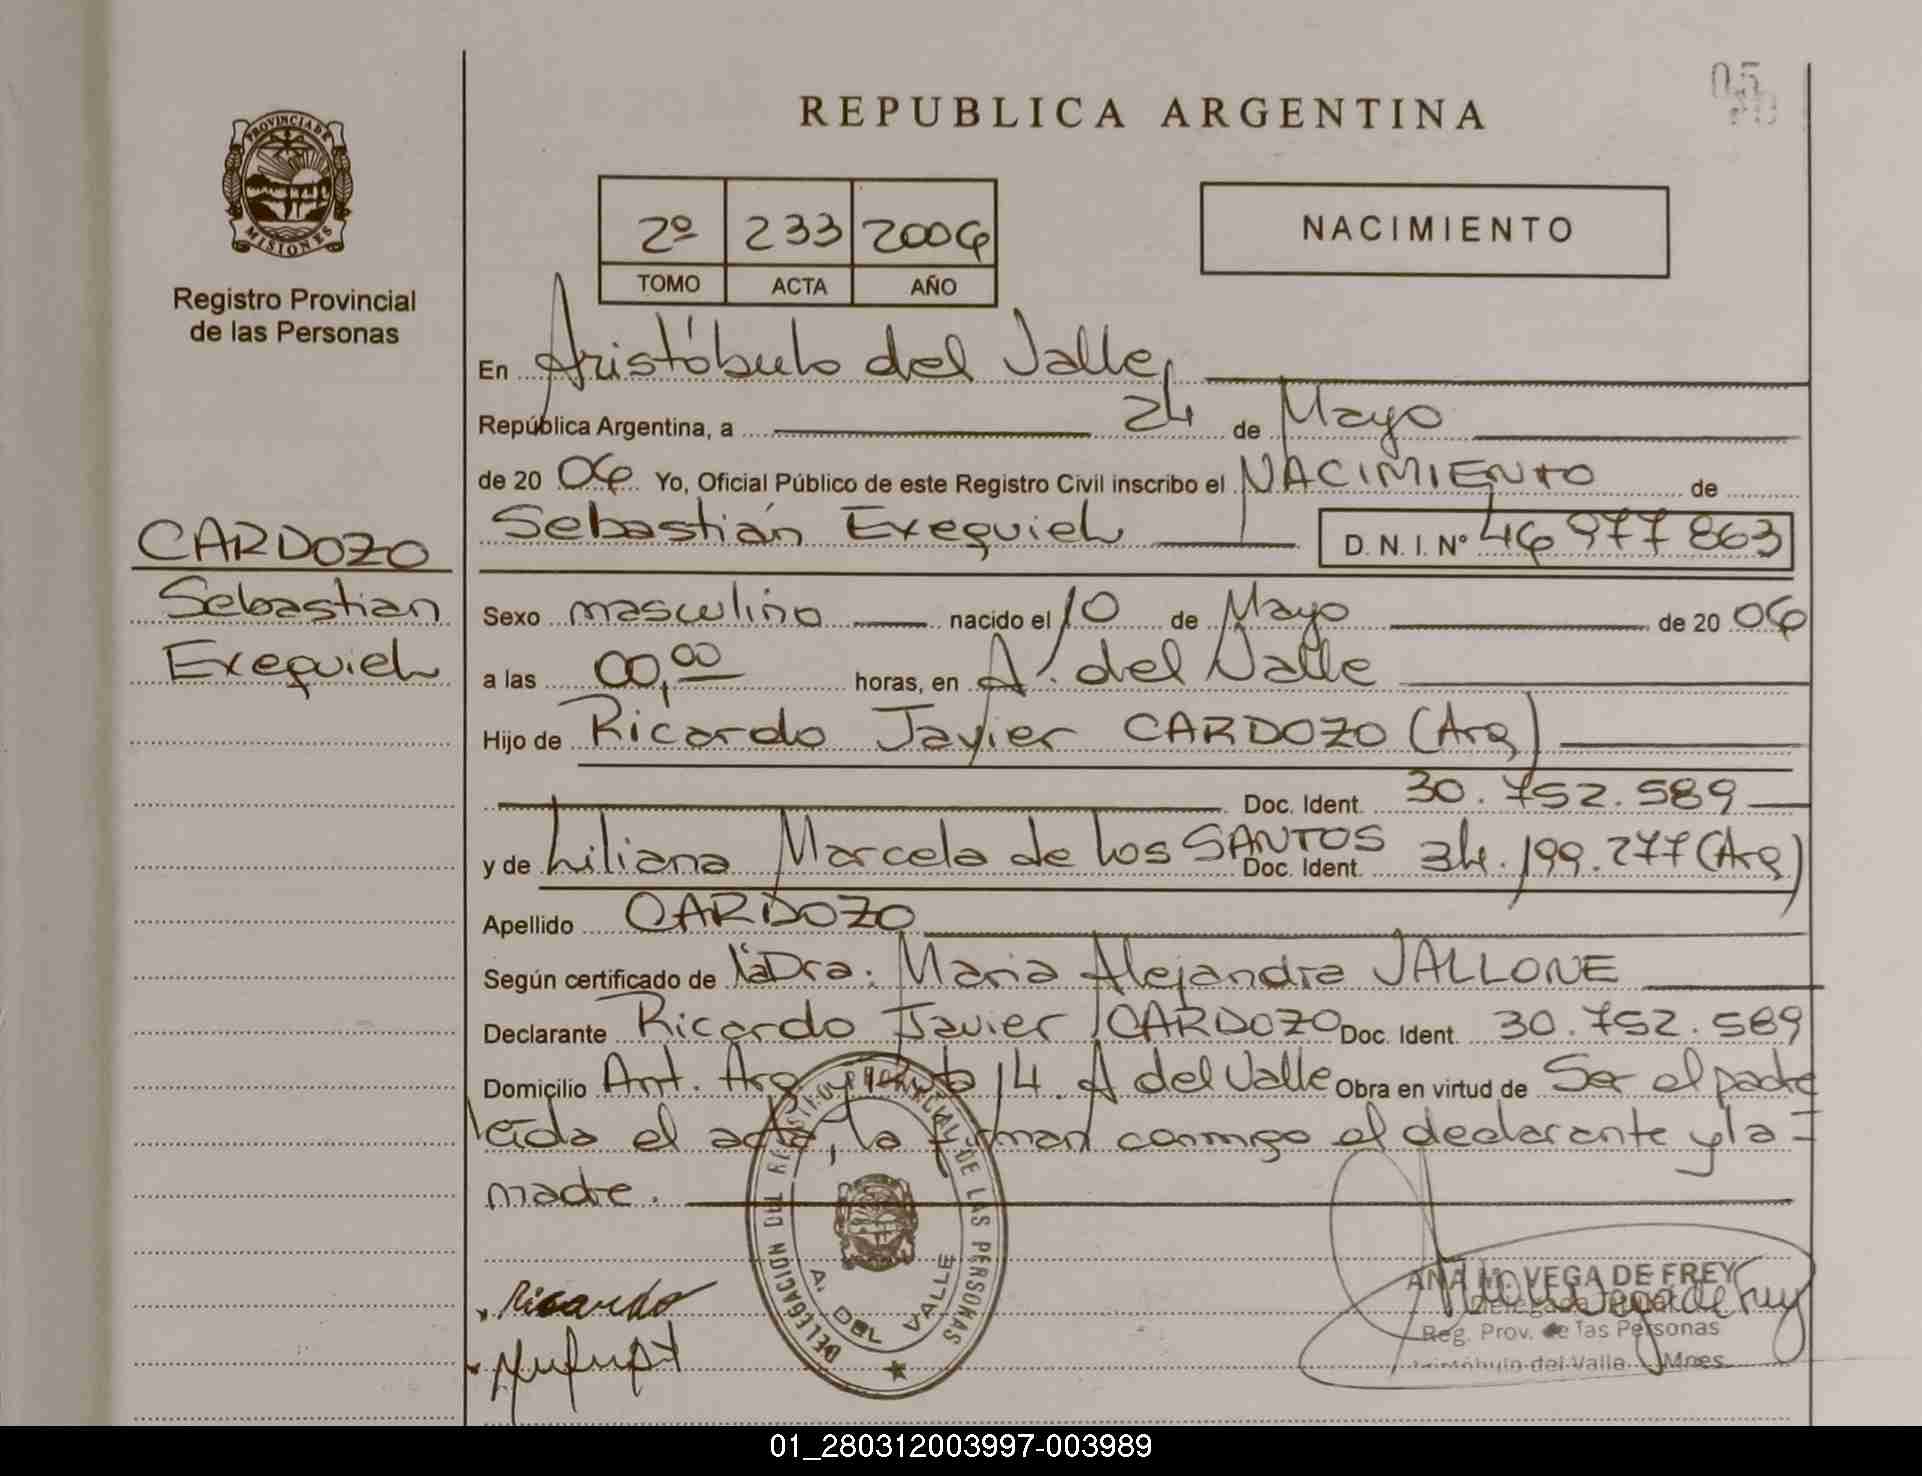 REPUBLICA ARGENTINA
05
PROVINCIA DE
MISIONES
Registro Provincial
de las Personas
2º 233 2006
TOMO ACTA AÑO
NACIMIENTO
En Aristóbulo del Valle,
República Argentina, a 24 de Mayo
de 20 06 Yo, Oficial Público de este Registro Civil inscribo el NACIMIENTO de
Sebastián Exequiel D. N. I. Nº 46 977 863
CARDOZO
Sebastian
Exequiel
Sexo masculino nacido el 10 de Mayo de 20 06
a las 00,00 horas, en A. del Valle
Hijo de Ricardo Javier CARDOZO (Arg)
Doc. Ident. 30.752.589
y de Liliana Marcela de los SANTOS Doc. Ident. 34.199.277 (Arg)
Apellido CARDOZO
Según certificado de la Dra. Maria Alejandra JALLONE
Declarante Ricardo Javier CARDOZO Doc. Ident. 30.752.589
Domicilio Ant. Arg y Ruta 14. A del Valle Obra en virtud de Ser el padre
leida el acta, la firman conmigo el declarante y la
madre.
DELEGACION DEL REGISTRO PROVINCIAL DE LAS PERSONAS
A. DEL VALLE
Ricardo
ANA M. VEGA DE FREY
Delegada Titular
Reg. Prov. de las Personas
Aristóbulo del Valle - Mnes.
01_280312003997-003989